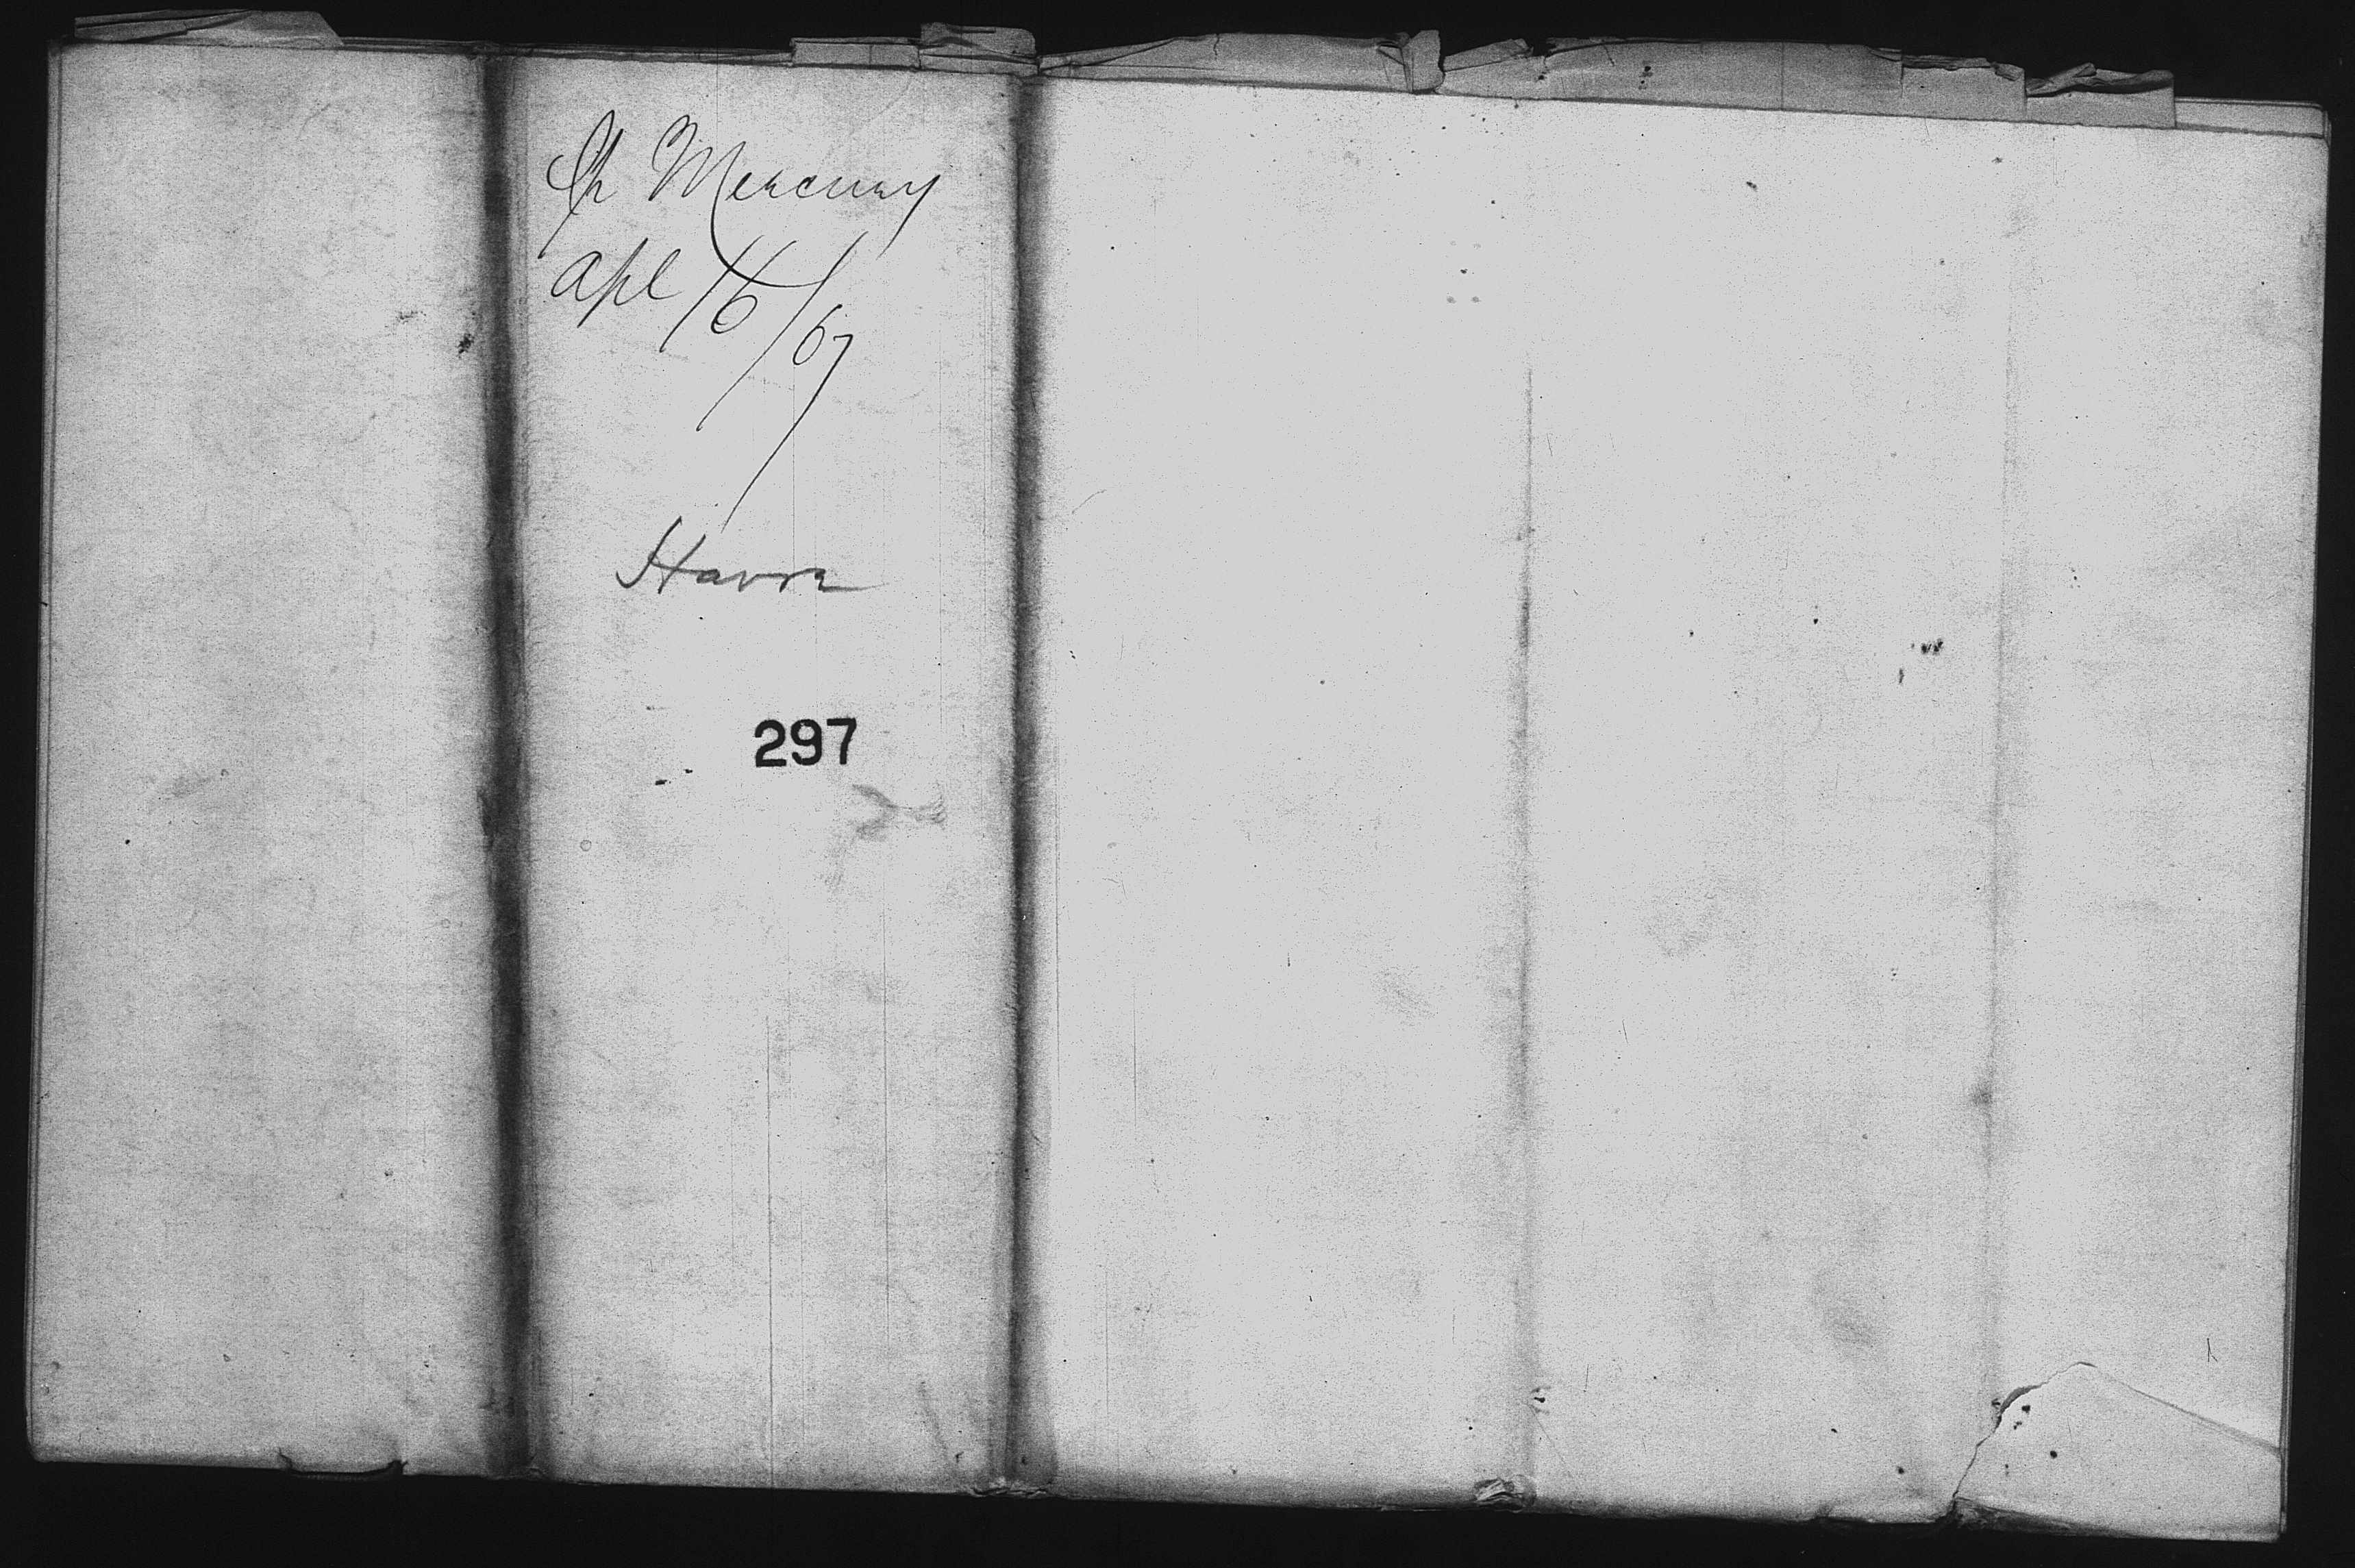 Sh Mercury
Apl 16/67
Havre
297